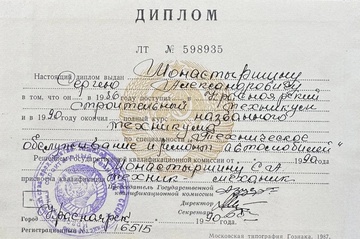 ДИПЛОМ
ЛТ № 598935
Настоящий диплом выдан Монастыршину
Сергею Александровичу
в том, что он в 1986 году поступил в Красноярский
строительный техникум
и в 1990 полный курс названного
техникума
по специальности „Техническое
обслуживание и ремонт автомобилей"
Решением Государственной квалификационной комиссии от 1990 г
Монастыршину С.А.
присвоена квалификация техник-механик
Председатель Государственной
квалификационной комиссии
Директор
Секретарь
Город Красноярск, 1990 г.
Регистрационный № 16515
Московская типография Гознака, 1987.